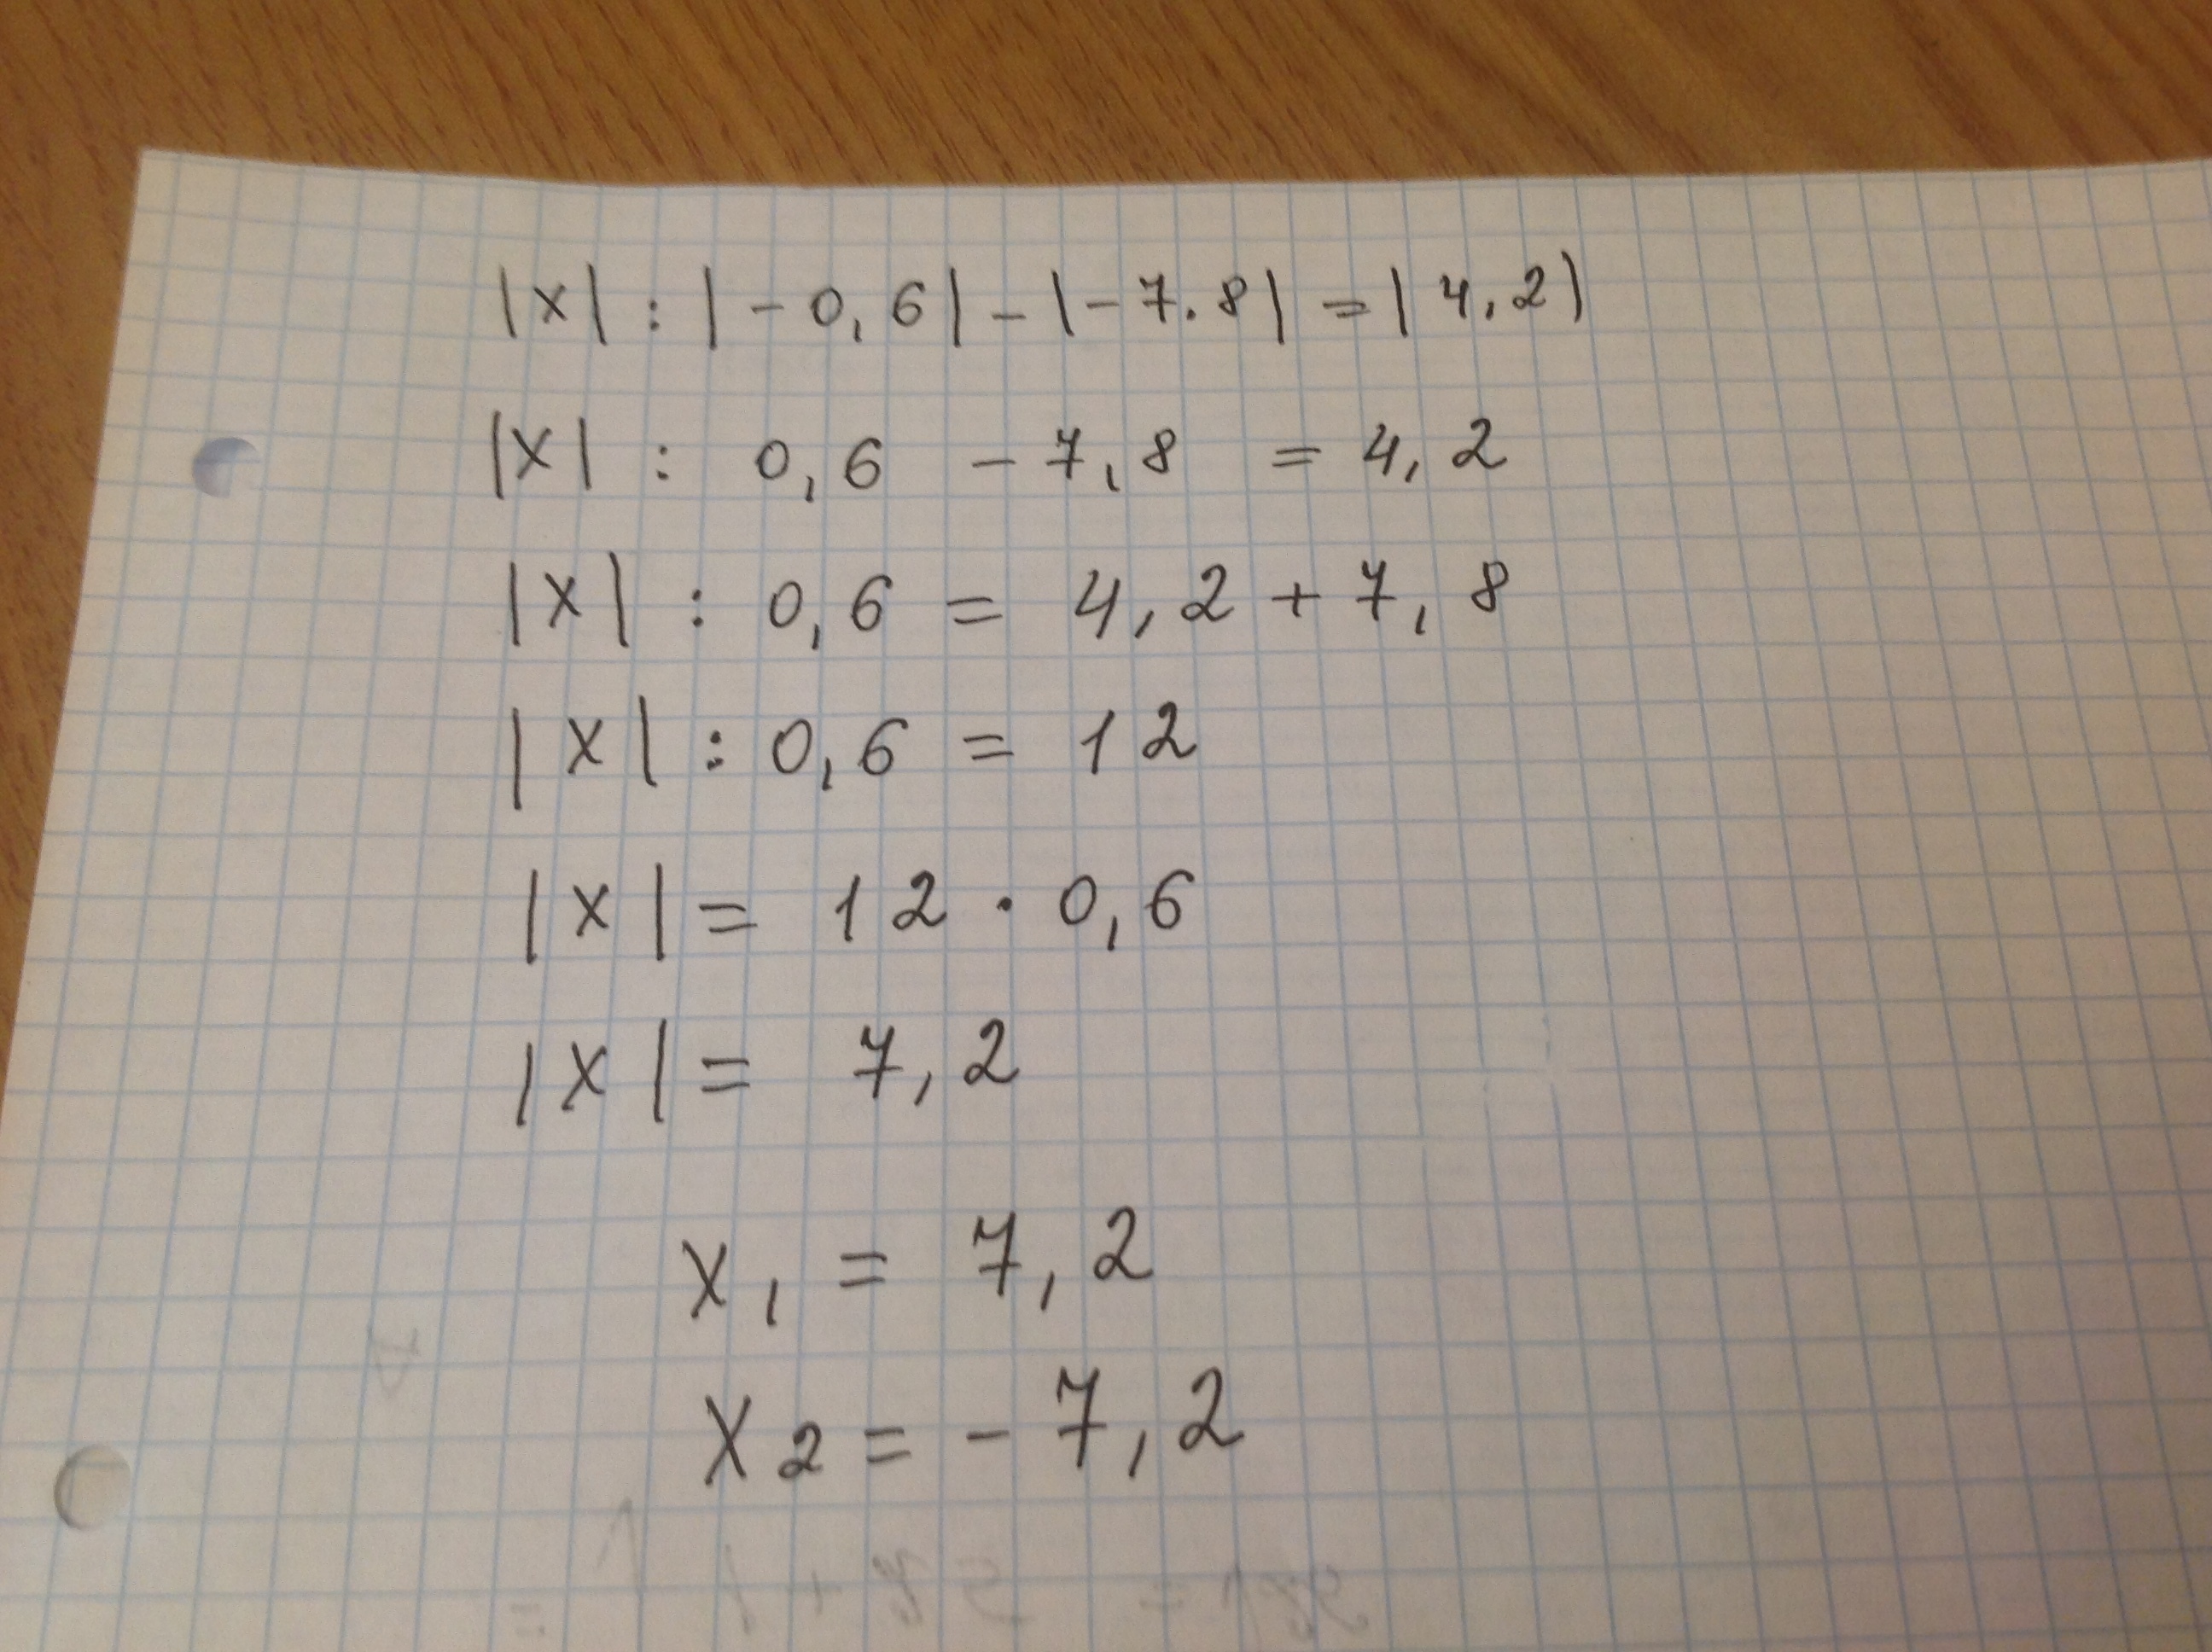 |x| : |-0,6| - |-7.8| = |4,2|
|x| : 0,6 - 7,8 = 4,2
|x| : 0,6 = 4,2 + 7,8
|x| : 0,6 = 12
|x| = 12 · 0,6
|x| = 7,2
x₁ = 7,2
x₂ = - 7,2